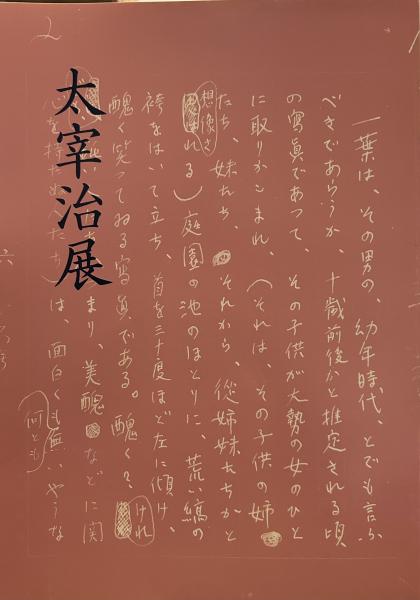 2
太宰治展
一葉は、その男の、幼年時代、とでも言ふ
べきであらうか、十歳前後かと推定される頃
の寫眞であつて、その子供が大勢の女のひと
に取りかこまれ、(それは、その子供の姉
たち、妹たち、それから、從姉妹たちかと
想像される)庭園の池のほとりに、荒い縞の
袴をはいて立ち、首を三十度ほど左に傾け、
醜く笑つてゐる寫眞である。醜く?けれ
まり、美醜などに関
心を持たぬ人たち)は、面白くも何とも無いやうな